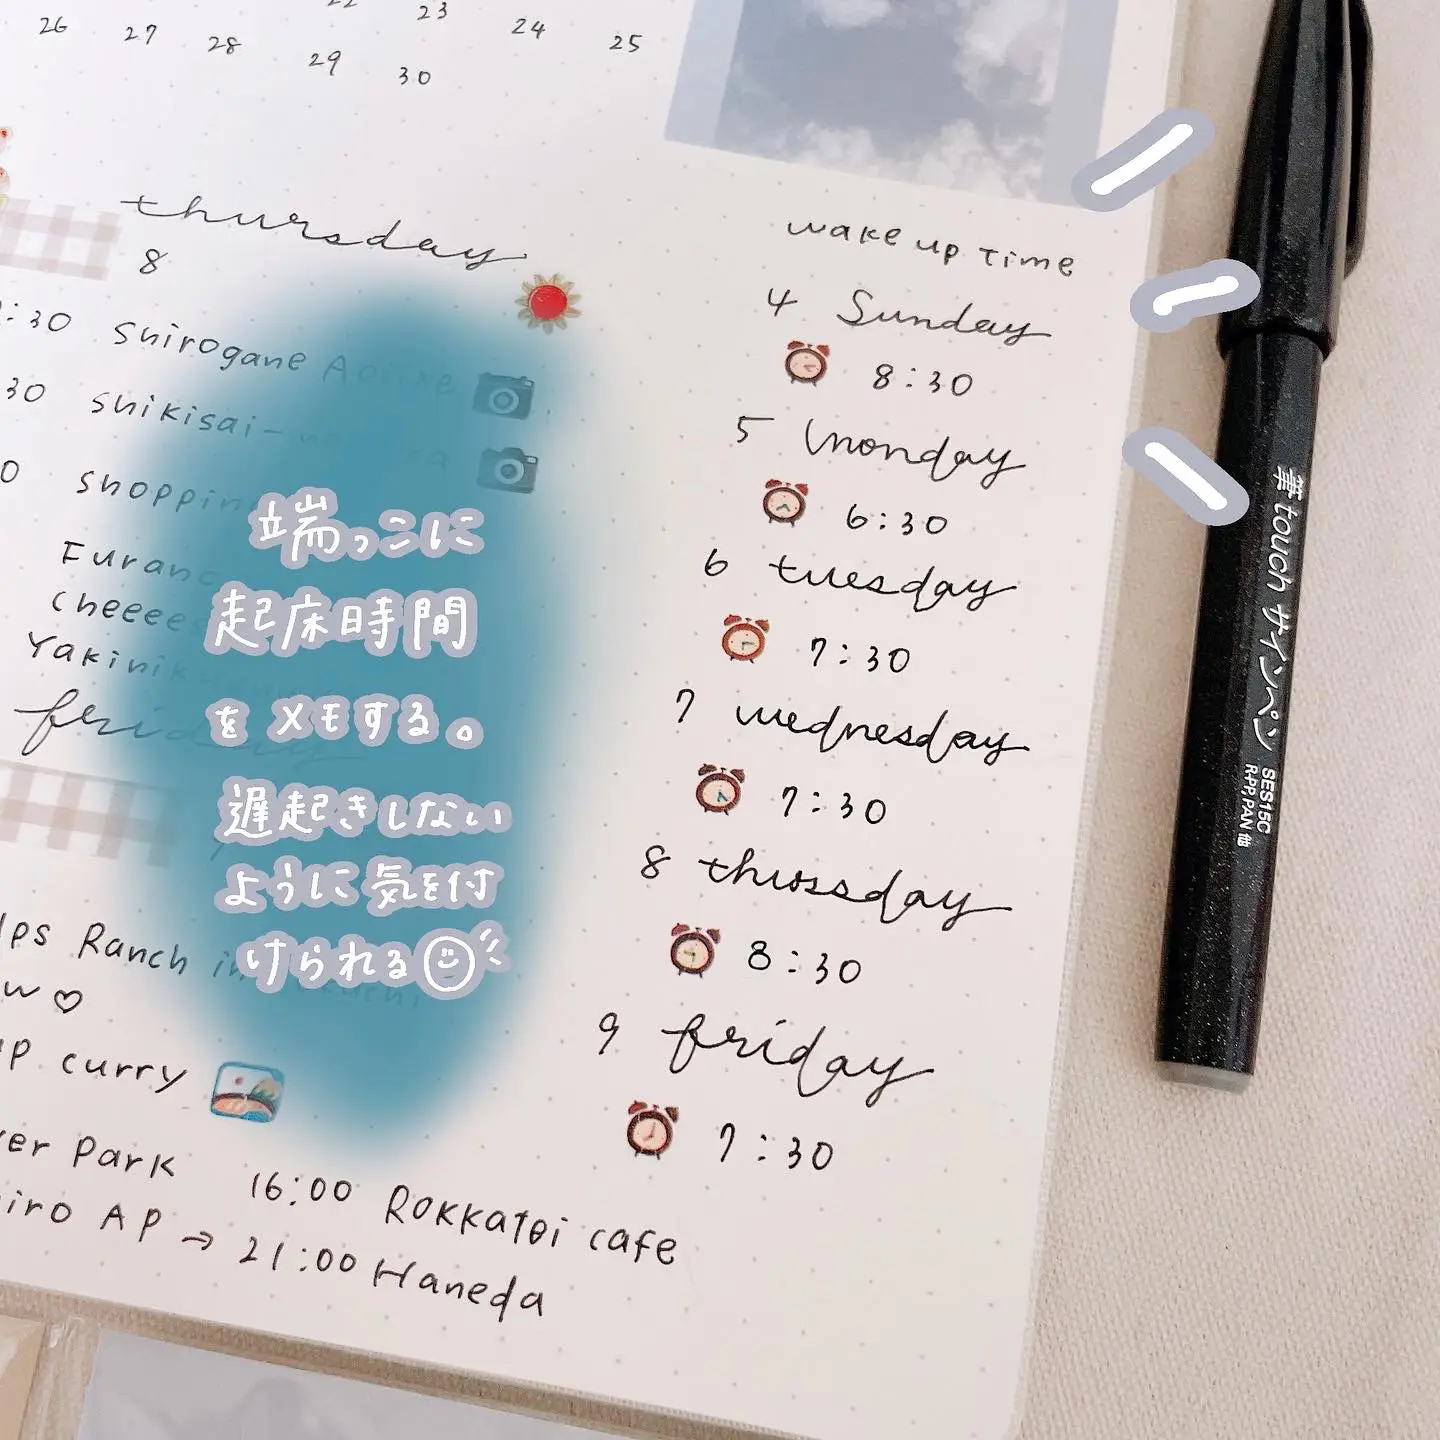 22 23
26 27 28 29 24 25
30
thursday
8
:30 Shirogane Aoiike
30 shikisai-
0 shoppin
Furano
cheeee
Yakinik
friday
lps Ranch in
w♡
up curry
ver Park 16:00 Rokkatei cafe
iro AP → 21:00 Haneda
端っこに
起床時間
をメモする。
遅起きしない
ように気を付
けられる
wake up time
4 Sunday
8:30
5 monday
6:30
6 tuesday
7:30
7 wednesday
7:30
8 thursday
8:30
9 friday
7:30
筆touchサインペン
SES15C
R-PP,PAN 他